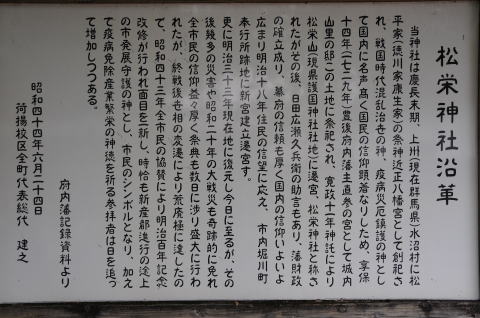 松栄神社沿革
当神社は慶長末期、上州(現在群馬県)水沼村に松
平家(徳川家康生家)の祭神近正八幡宮として創祀さ
れ、戦国時代混乱治舎の神、疫病災厄鎮護の神とし
て国内に名声高く国民の信仰顕著なりしため、享保
十四年(七二九年)豊後府内藩主直参の宮として城内
山里の邸(この土地)に祭祀され、寛政十一年神託により
松栄山(現県護国神社社地)に遷宮、松栄神社と称さ
れたがその後、日田広瀬久兵衛の助言もあり、藩財政
の確立成り、幕府の信頼も厚く国内の信仰いよいよ
広まり明治十八年住民の信望に応え、市内堀川町
奉行所跡地に新宮建立遷宮す。
更に明治三十三年現在地に復元し今日に至るが、その
後幾多の災害や昭和二十年の大戦災も奇跡的に免れ
全市民の信仰益々厚く祭典も数日に渉り盛大に行わ
れたが、終戦後世相の変遷により荒廃極に達したの
で、昭和四十三年全市民の協賛により明治百年記念
改修が行われ面目を一新し、時恰も新産都進行の途上
の市発展守護の神とし、市民のシンボルとなり、加え
て疫病免除産業繁栄の神徳を祈る参拝者は日を追っ
て増加しつつある。
府内藩記録資料より
昭和四十四年六月二十四日
荷揚校区全町代表総代 建之